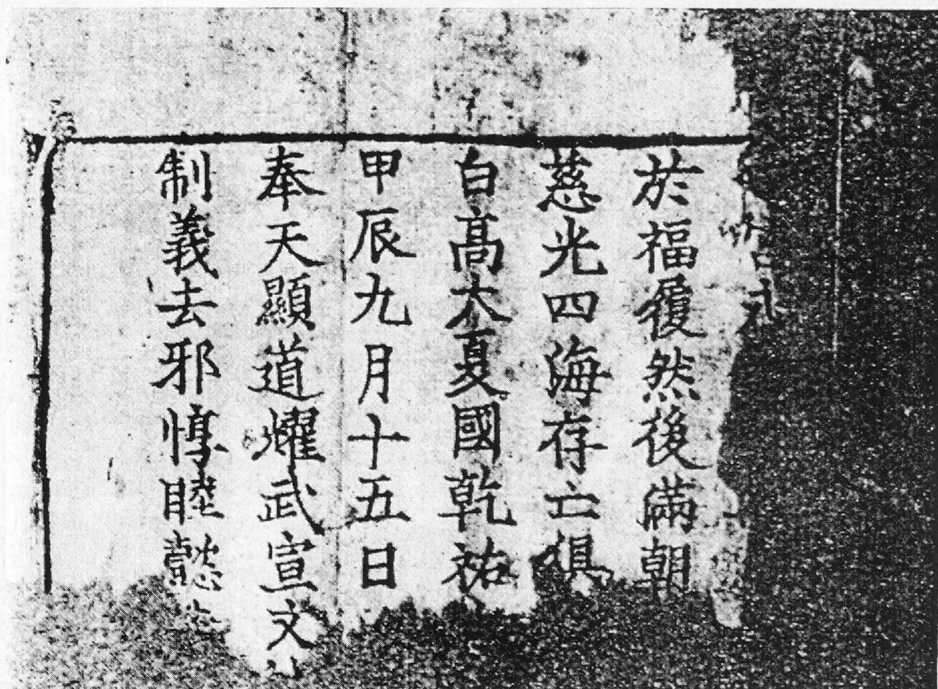 於福履然後滿朝
慈光四海存亡俱
白髙大夏國乾祐
甲辰九月十五日
奉天顯道耀武宣文
制義去邪惇睦懿